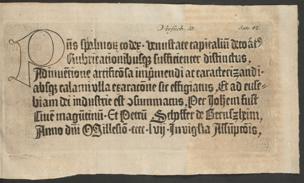 Pñs spalmoꝝ codex. venustate capitaliũ decoratꝰ
Rubricationibusqꝫ sufficienter distinctus,
Adinuentione artificosa imprimendi ac caracterizandi.
absqꝫ calami vlla exaracone sic effigiatus, Et ad euse-
biam dei industrie est ɔsummatus, Per Johem fust
Ciuem magūtinũ, Et Petrũ Schoffer de Gernszheim,
Anno dñi Millesio .cccc. lvij. In vigilia Assũpcõis,